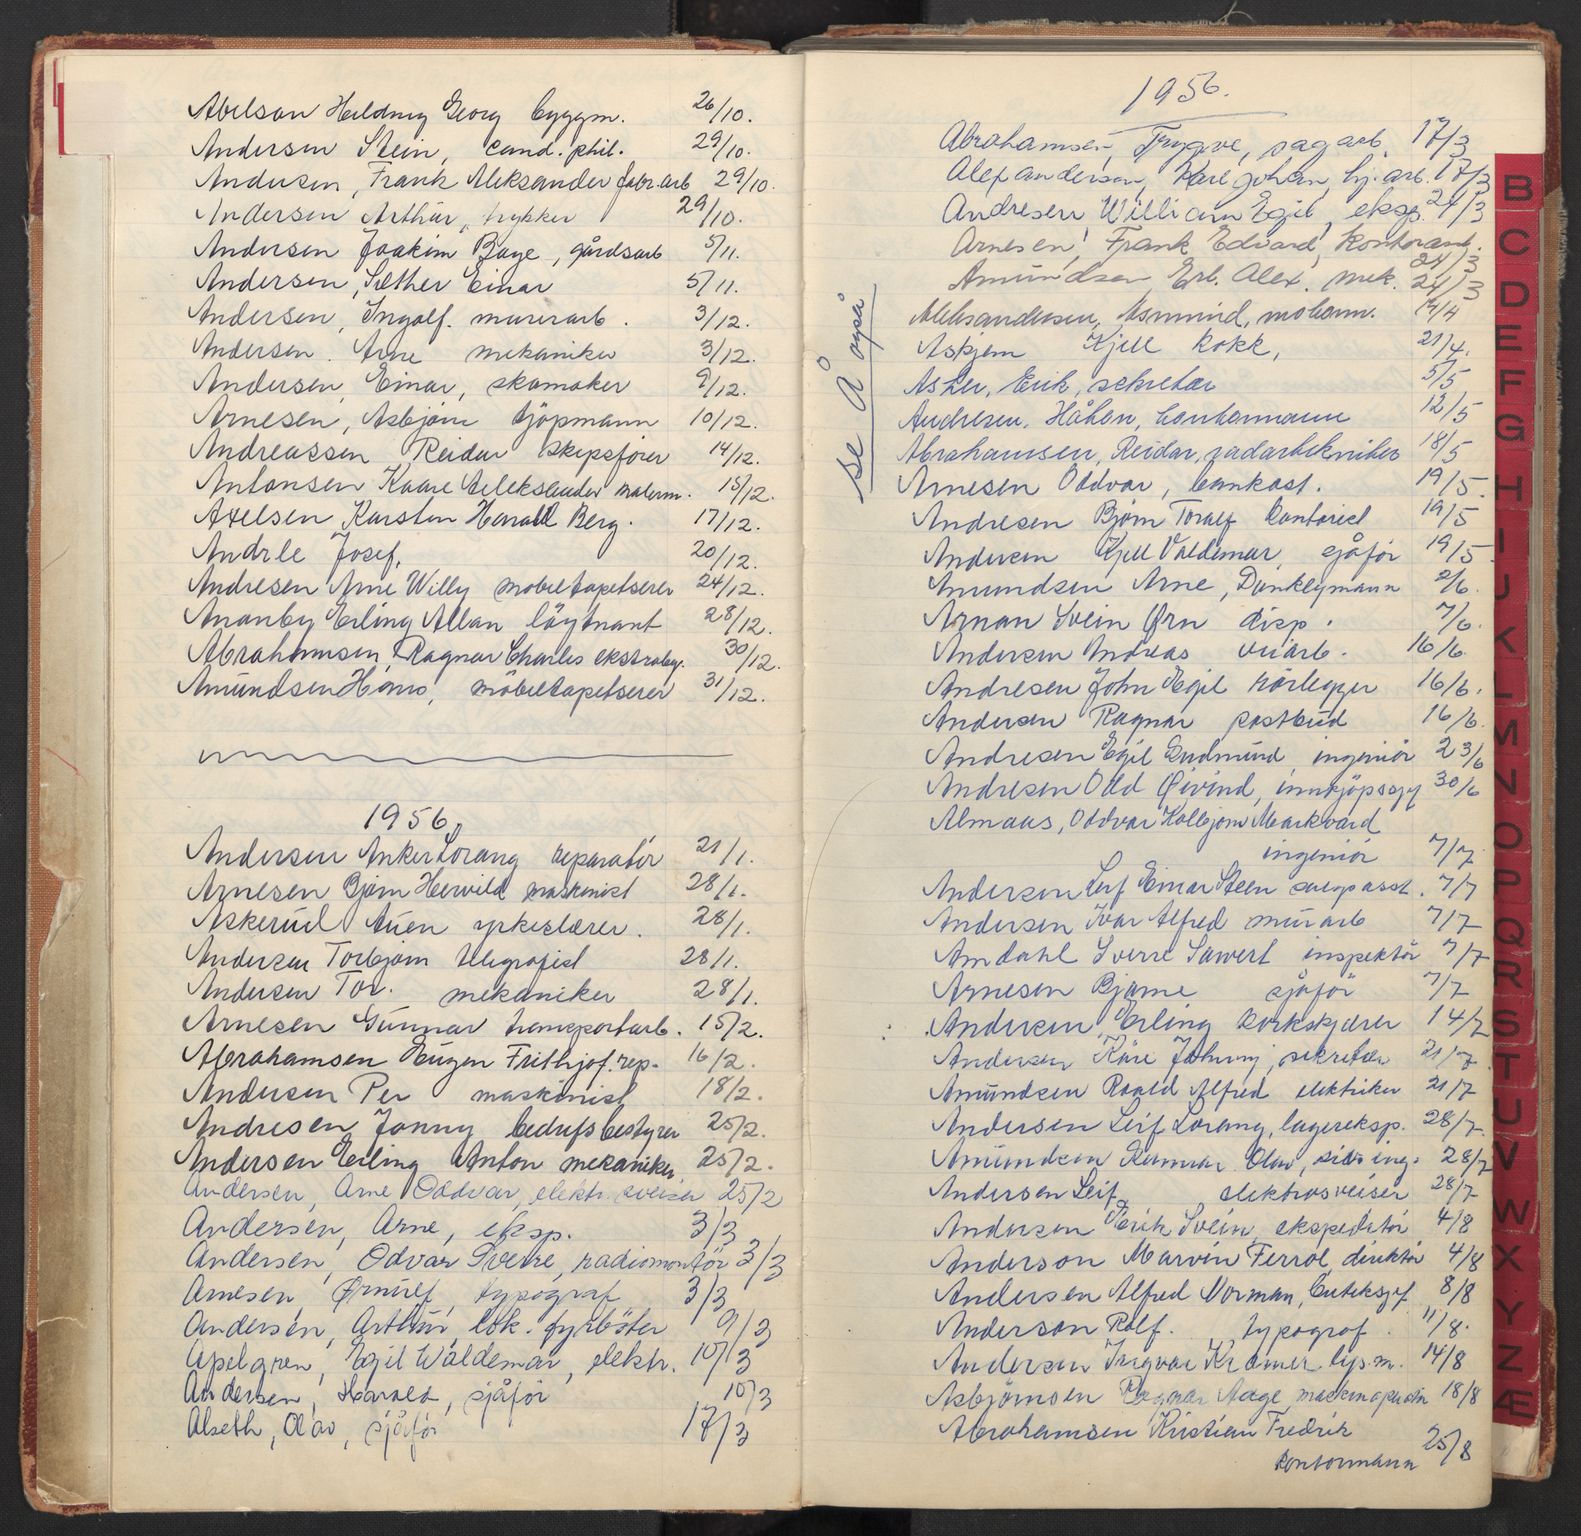 Abelson Heldrug Georg byggm. 26/10.
Andersen Stein, cand. phil. 29/10.
Andersen, Frank Aleksander fabr.arb 29/10.
Andersen Arthur, trykker 29/10.
Andersen Joakim Baye, gårdsarb 5/11.
Andersen, Sæther Einar 5/11.
Andersen, Ingolf. murerarb. 3/12.
Andersen. Arne mekaniker 3/12.
Andersen, Einar, skomaker 9/12.
Arnesen, Asbjörn kjöpmann 10/12.
Andreassen Reidar Skipsförer 14/12.
Antonsen Kaare Aleksander malerm. 15/12.
Axelsen Karsten Harald Berg. 17/12.
Andrle Josef, 20/12.
Andresen Arne Willy möbeltapetserer 24/12.
Ananby Erling Allan löytnant 28/12.
Abrahamsen, Ragnar Charles ekstrabg. 30/12.
Amundsen Hans, möbeltapetserer 31/12.
1956
Andersen Anker Lorang reparatör 21/1.
Arnesen Bjørn Hervild maskinist 28/1.
Askerud Auen yrkeslærer. 28/1.
Andersen Torbjørn telegrafist 28/1.
Andersen Tor. mekaniker 28/1.
Arnesen Gunnar transportarb. 15/2.
Abrahamsen Eugen Frithjof. rep. 16/2.
Andersen Per maskinist 18/2.
Andresen Jonny bedriftsbestyrer 25/2.
Andersen Erling Anton mekaniker 25/2.
Andersen, Arne Oddvar, elektr. sveiser 25/2
Andersen, Arne, eksp. 3/3
Andersen, Odvar Sverre, radiomontör 3/3
Arnesen, Ørnulf, typograf 3/3
Andersen, Arthur, lok. fyrböter 9/3
Apelgren, Egil Waldemar, elektr. 10/3
Andersen, Harald, sjåför 10/3
Alseth, Olav, sjåför 17/3
1956.
Abrahamsen, Trygve, sagarb. 17/3
Alexandersen, Karl Johan, hj.arb. 17/3
Andresen, William Egil, eksp. 24/3
Arnesen, Frank Edvard, kontorarb. 24/3
Amundsen, Erl. Alex. mek. 24/3
Se Å også
Aleksandersen, Asmund, mobann. 14/4
Askjem Kjell kokk, 21/4.
Asker, Erik, sekretær 5/5
Andresen, Håkon, kontormann 12/5
Abrahamsen, Reidar, radartekniker 18/5
Arnesen Oddvar, bankass. 19/5.
Andresen Bjørn Toralf kontorist 19/5
Andersen Kjell Valdemar, sjåför 19/5.
Amundsen Arne, Dunkleymann 2/6.
Arman Svein Ørn disp. 7/6.
Andersen Andreas veiarb. 16/6.
Andresen John Egil rörlegger 16/6.
Andersen Ragnar postbud 16/6.
Andresen Egil Gudmund, ingeniör 23/6
Andresen Odd Øivind, innkjöpssjef 30/6
Almaas, Oddvar Kolbjørn Markvard
ingeniör 7/7
Andersen Leif Einar Steen salgsasst. 7/7
Andersen Ivar Alfred murarb 7/7
Amdahl Sverre Sawert inspektör 7/7
Arnesen Bjarne sjåför 7/7
Andersen, Erling korkskjærer 14/7
Andersen Kåre Johnny, sekretær 21/7
Amundsen Roald Alfred elektriker 21/7
Andersen Leif Lorang, lagereksp. 28/7
Amundsen Gunnar Olav, siv. ing. 28/7
Andersen Leif, elektrosveiser 28/7
Andersen Erik Svein, ekspeditör 4/8
Anderson Marvin Ferrol direktör 4/8
Andersen Alfred Norman, butikksjef 8/8
Anderson Rolf. typograf. 11/8.
Andersen Ingvar Kramer lys.m. 14/8
Asbjörnsen Ragnar Aage maskinoperatör 18/8
Abrahamsen Kristian Fredrik
kontormann 25/8
B
C
D
E
F
G
H
I
J
K
L
M
N
O
P
Q
R
S
T
U
V
W
X
Y
Z
Æ